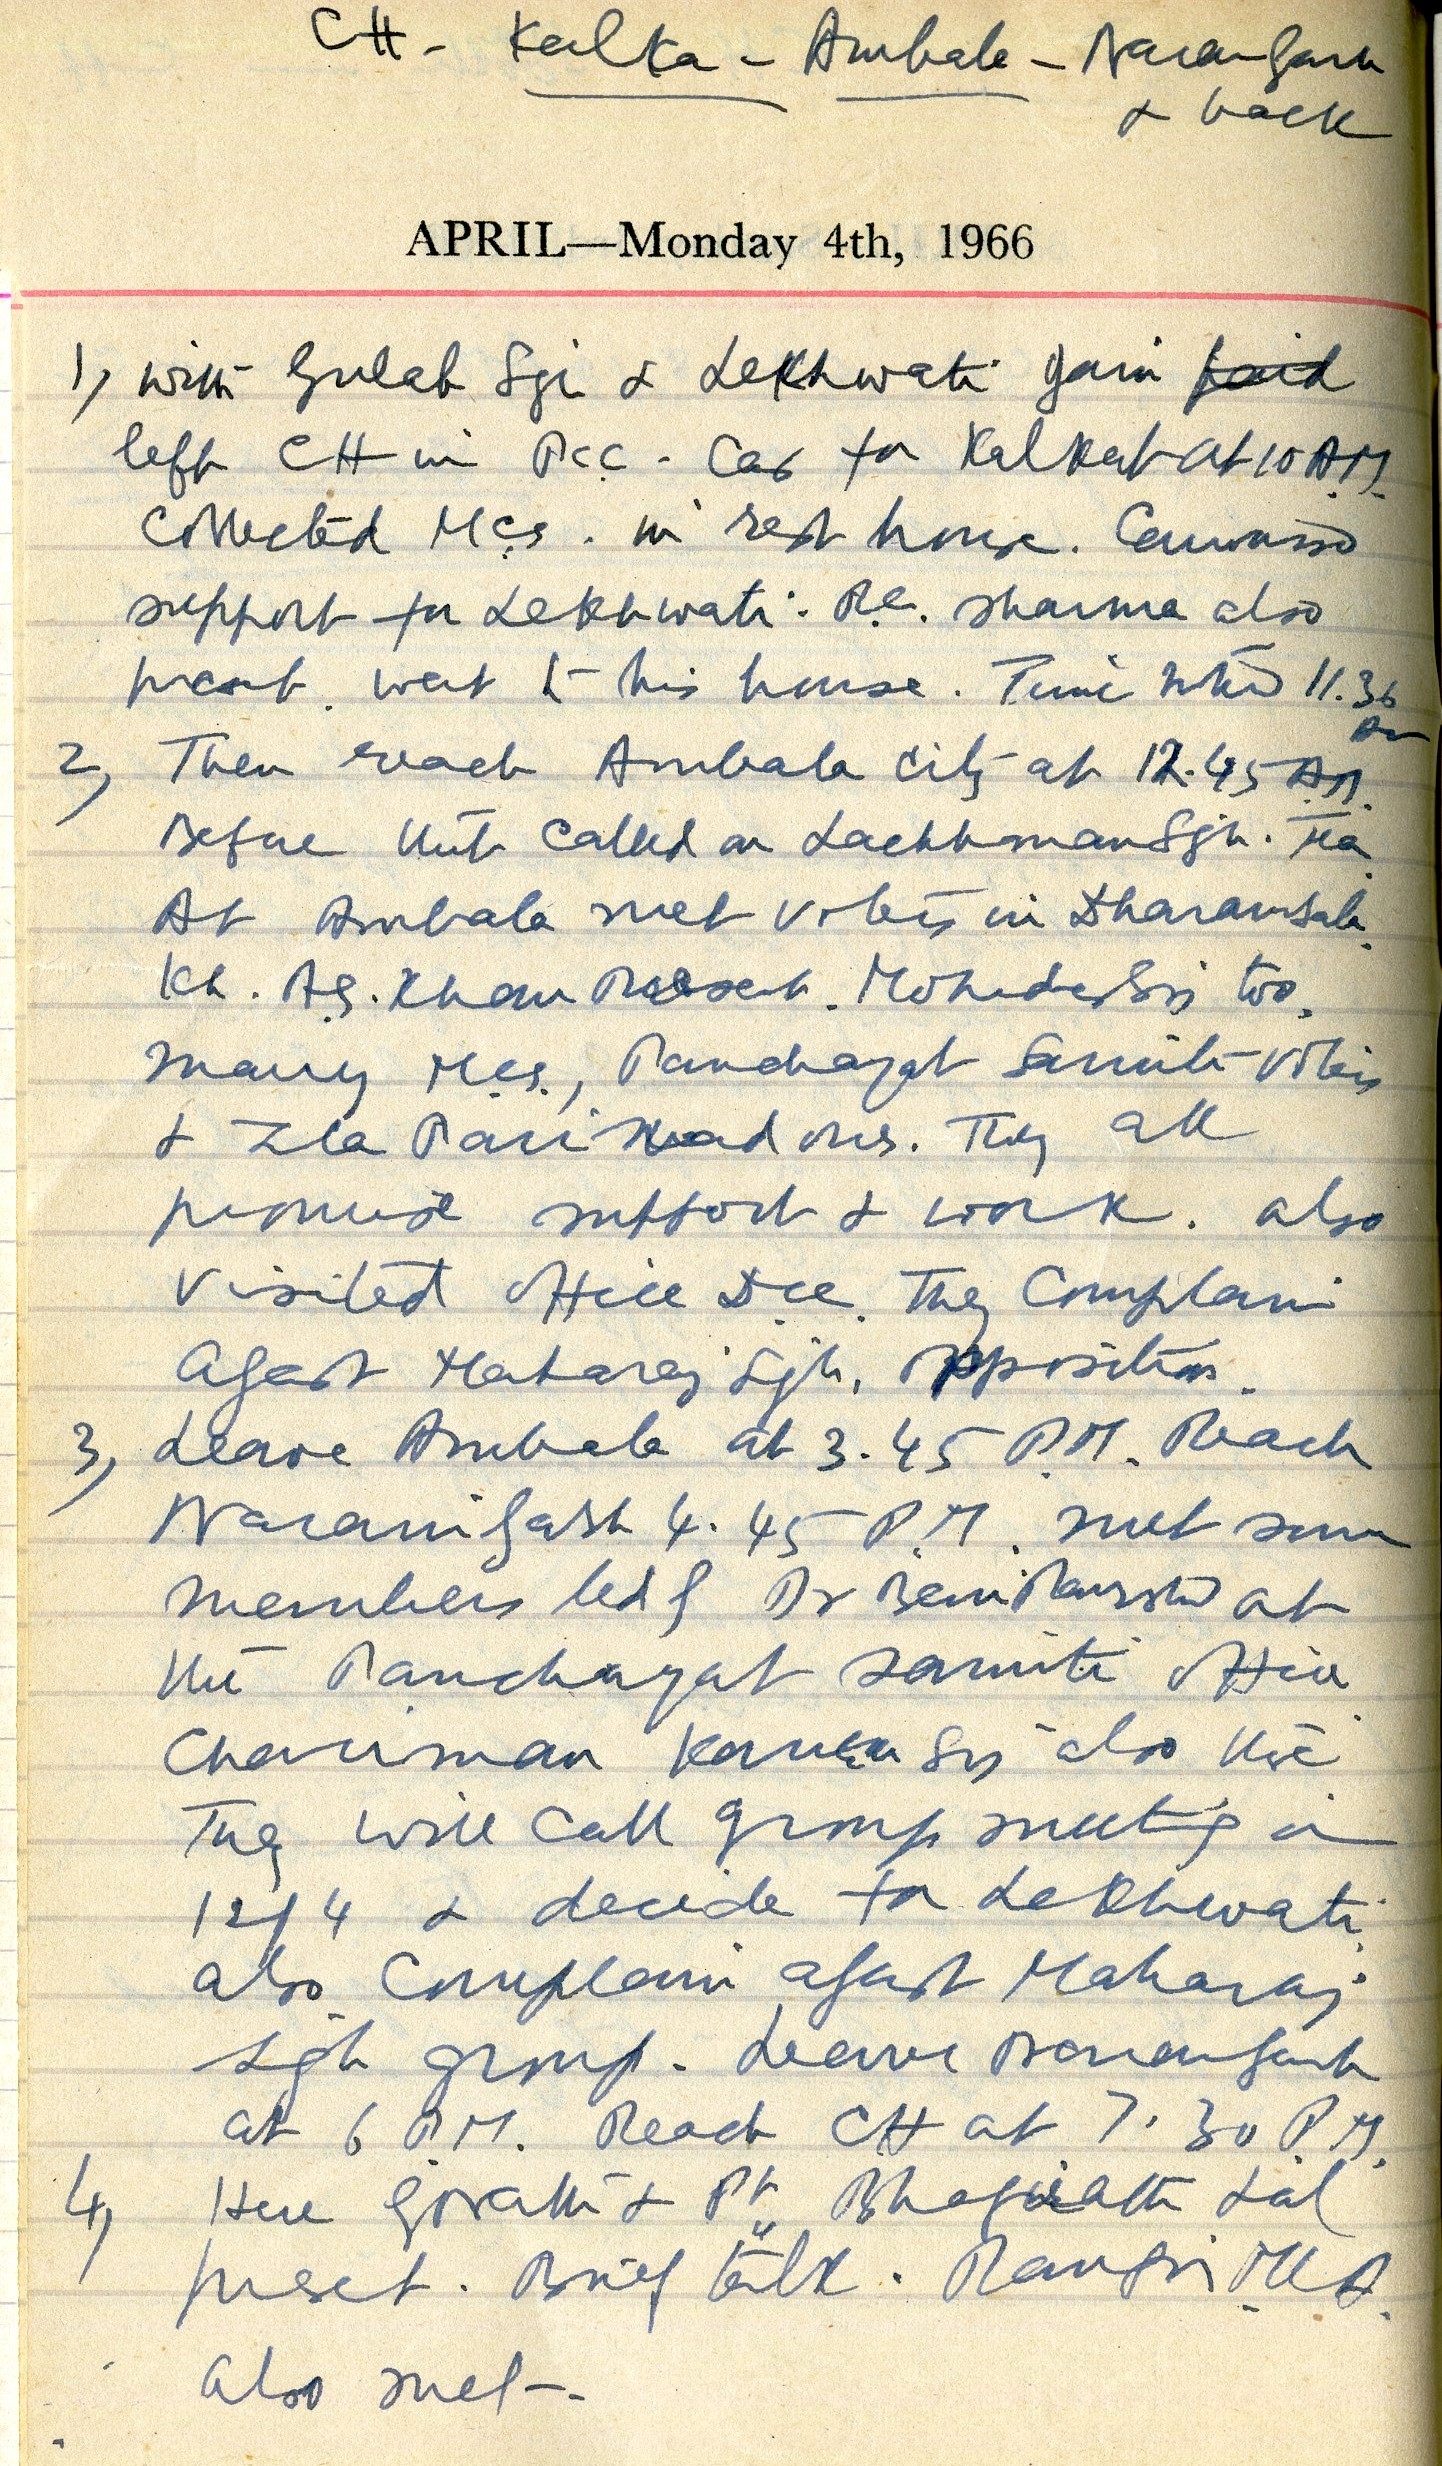 CH - Kalka - Ambala - Narangarh
& back
APRIL—Monday 4th, 1966
1, with Gulab Sgi & Lekhwati Jain
left CH in Pcc. Car for Kalka at 10 A.M.
Collected M.Cs. in rest house.
support for Lekhwati. Sharma also
present. went to his house. Time 11.30
AM
2, Then reach Ambala city at 12.45
Before that called on Lachhman Sgh. Tea
At Ambala met voters in Dharamsala
Kh. A.G. Khan Present. Mohinder Sgi too.
many M.Cs., Panchayat Samiti voters
& Zila Parishad ones. They all
promise support & work. also
visited office Dcc. They Complain
against Maharaj Sgh. opposition.
3, Leave Ambala at 3.45 P.M. Reach
Naraingarh 4.45 P.M. met some
members led by at
the Panchayat Samiti office
Chairman Sgi also there
They will call group meeting on
12/4 & decide for Lekhwati
also Complain against Maharaj
Sgh group. Leave Narangarh
at 6 P.M. Reach CH at 7.30 P.M.
4, Here & Pt. Bhagirath Lal
preset. Brief talk. M.L.A.
also met.